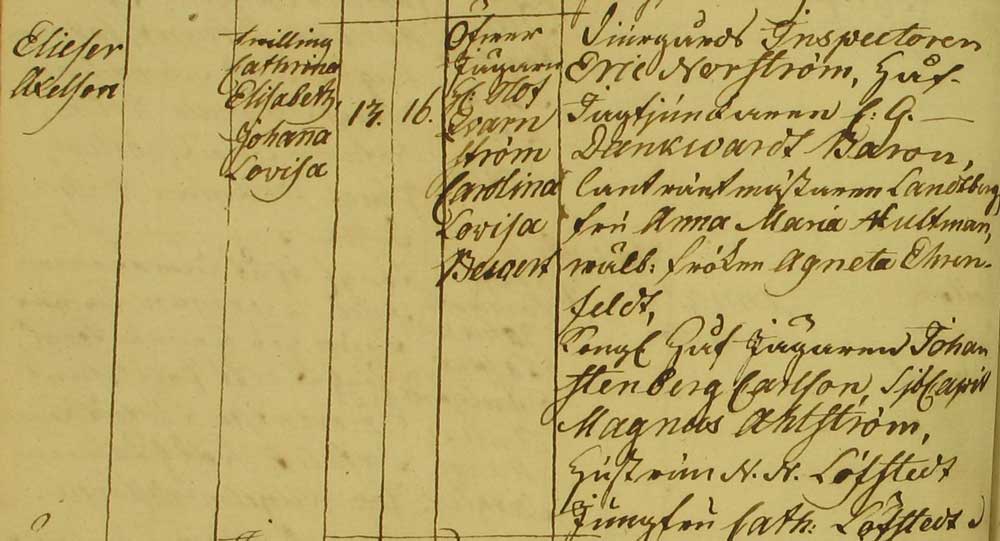 Elieser
Axelson
twilling
Cathrina
Elisabeth,
Johana
Lovisa
13.
16.
Öfwer
Jägarn
H. Olof
Qvarn
ström
Carolina
Lovisa
Beigert
Diurgårds Inspectoren
Eric Norström, Huf-
Jagtjunkaren C: G.
Danckwardt Baron,
lant räntmästaren Landtberg
fru Anna Maria Hultman,
wälb: fröken Agneta Ehren-
feldt,
Kongl Huf Jägaren Johan
Stenberg Carlson, SjöCapit
Magnus Ahlström,
Hustrun N. N. Löfstedt
Jungfru Cath: Löfstedt